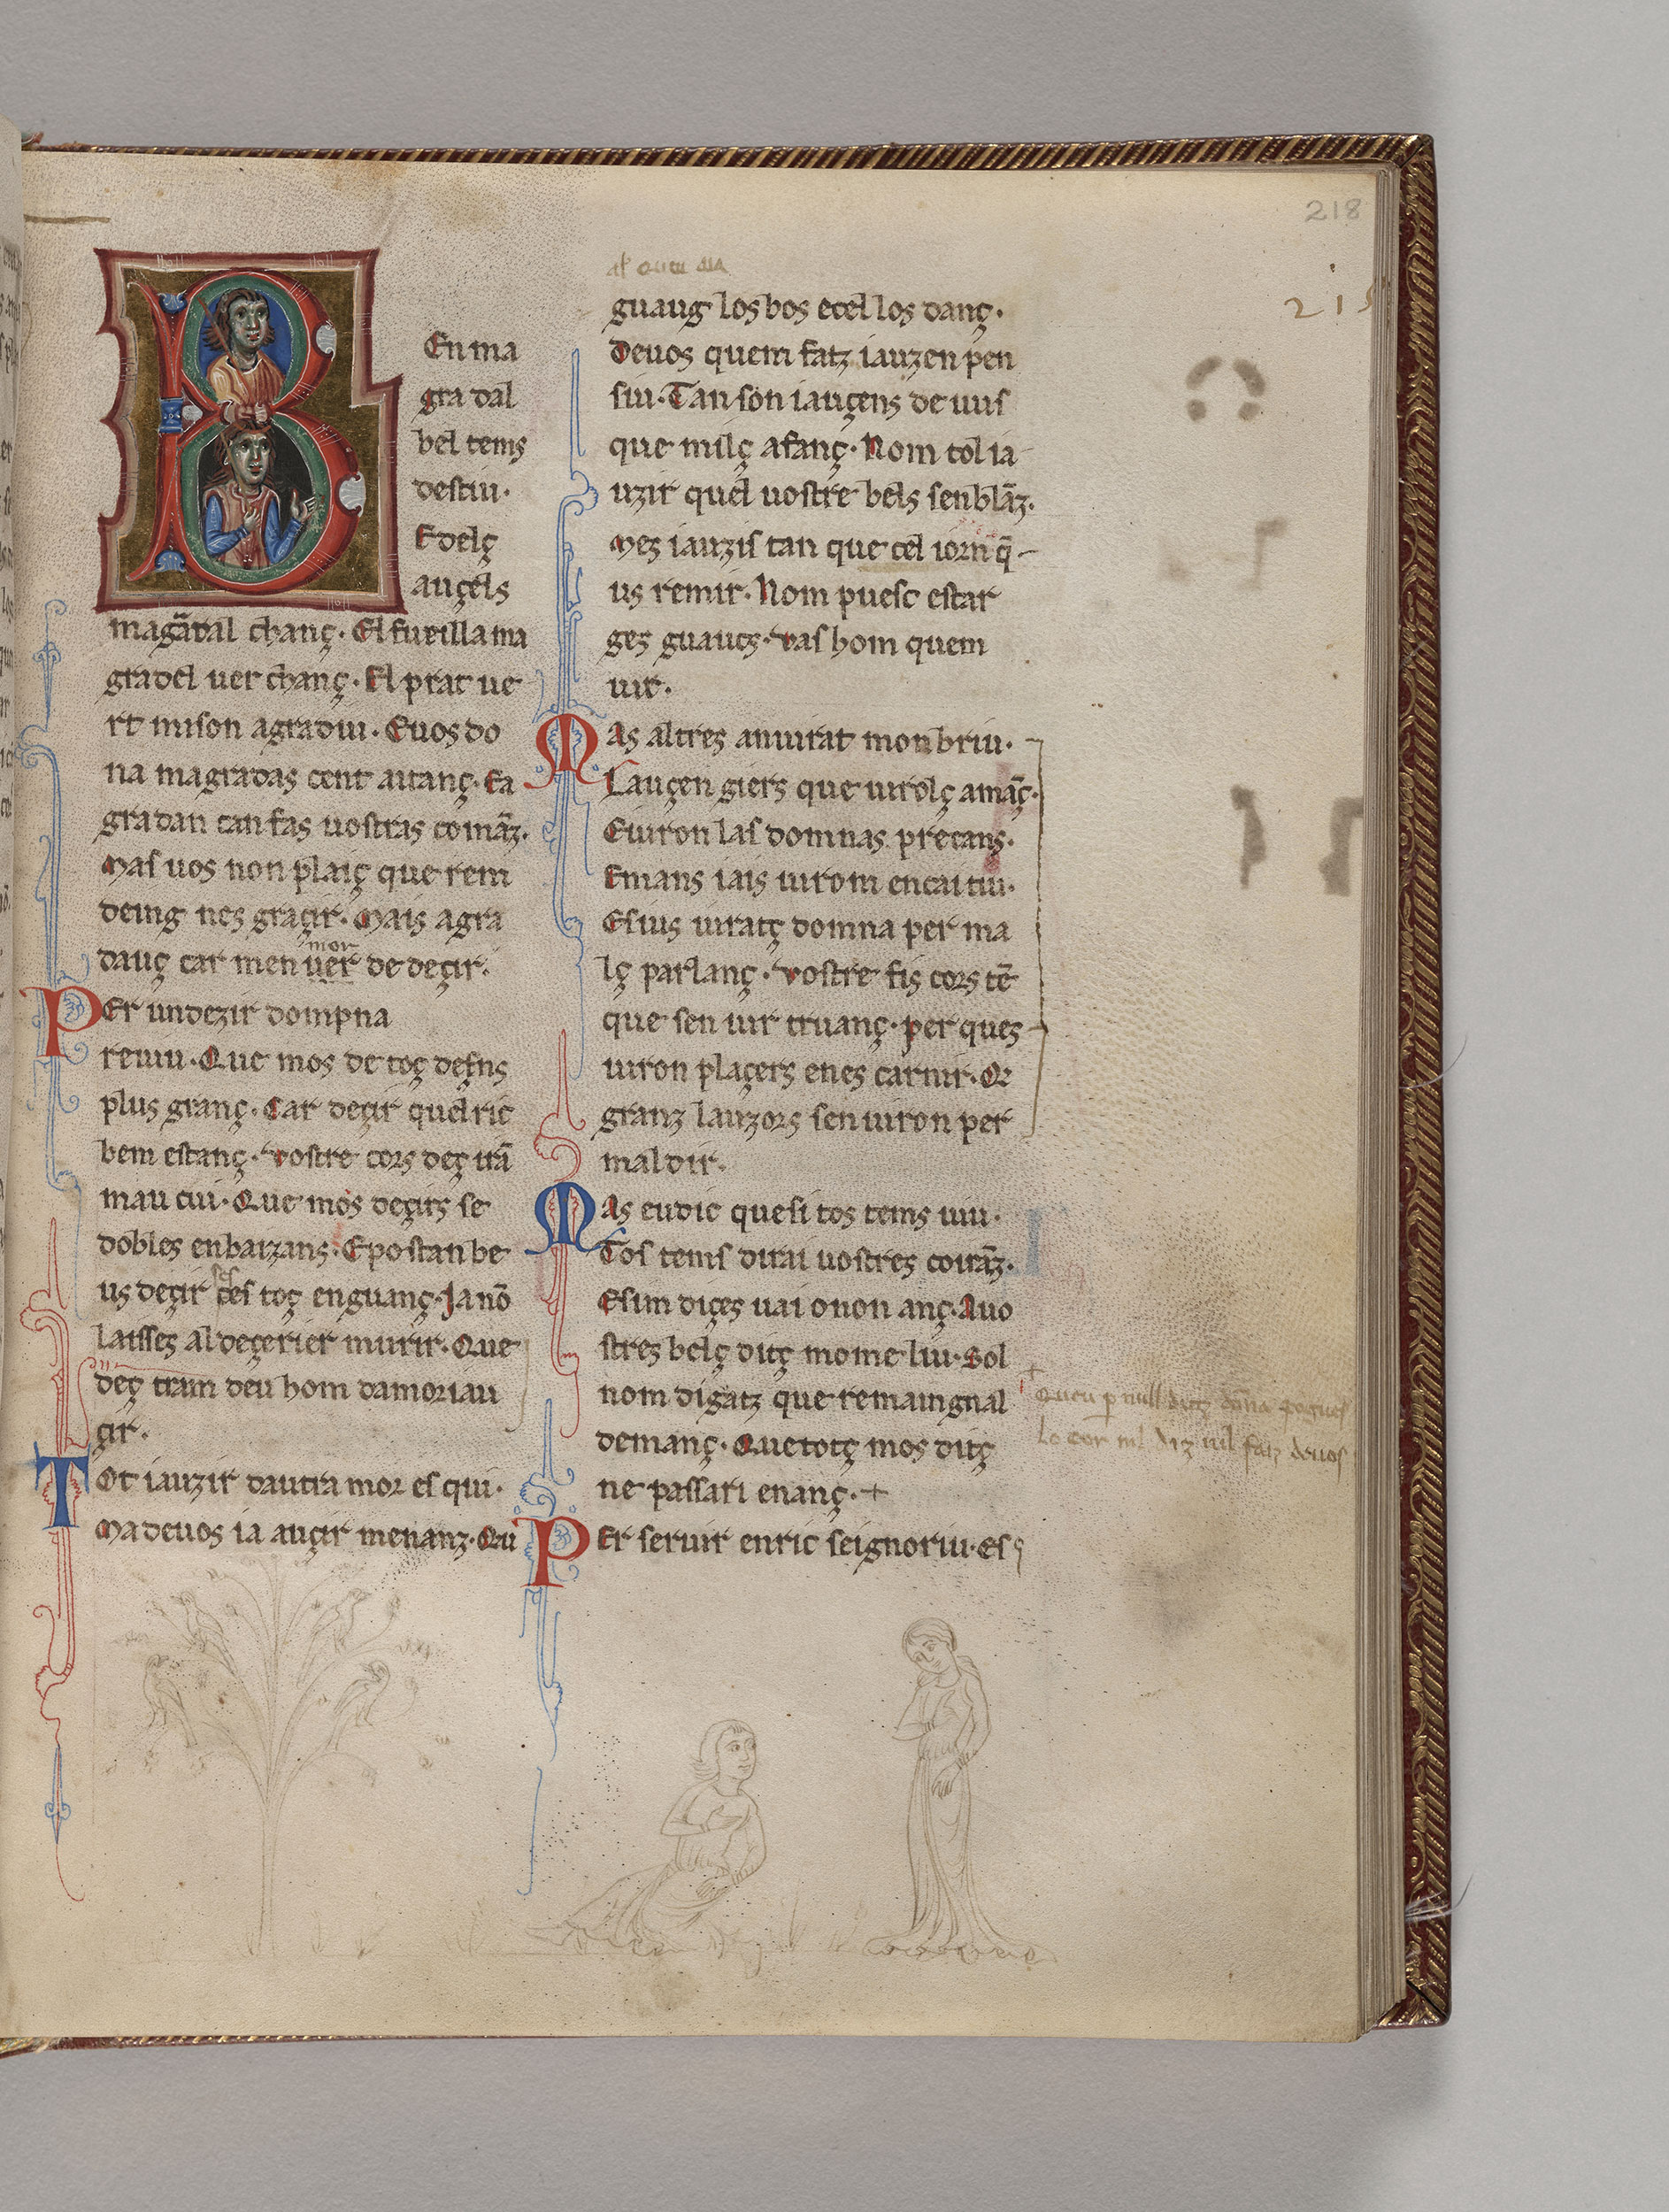 218
215
BEn ma
gra dal
bel tems
destiu·
E delç
auçels
magādal chanç· El fueilla ma
gradel uer chanç· El prat ue
rt mison agradiu· Euos do
na magradas cent aitanç· Ea
gradan can fas uostras comāz·
Mas uos non plaiç que rem
deing nes graçir· Mais agra
mor
dauç car men uer de deçir·
PEr un dezir dompna
reuiu· Que mos de toç deserts
plus granç· Car deçir quel ric
bem estanç· vostre cors deç uā
mau ciu· Que mos deçirs se
dobles en baizans· E postan be
us deçir ses toç enguanç· Ja nō
laissez al deçerier murir· Que
deç tram deu hom damor iau
çir·
TOt iauzir dautra mor esqui·
Ma deuos ia auçir menanz· Qu
guaug los bos ecel los danç·
Deuos quem fatz iauzen pen
siu· Tan son iauçens de uus
que milç afanç· Nom tol ia
uzir quel uostre bels senblāz·
Mez iauzis tan que cel iorn q̄
us remir· Nom puesc estar
ges guaucs· vas hom quem
uir·
MAs altres an uirat mon briu·
Lauçen giers que uirolç amāç·
Euiron las domnas precans·
Emans iais uirom encaitiu·
Esius uiratç domna per ma
lç parlanç· vostre fis cors tē
que sen uir truanç· per ques
uiron plaçers enes carnir· Q
granz lauzors sen uiron per
mal dir·
MAs cudic quesi tos tems uiu·
Tos tems dirai uostres comāz·
Esim diçes uai o non anç· Auo
strez belç ditç mome liu· Sol
nom digatz que remaingnal
demanç· Que totç mos ditç
ne passari enanç· +
+ Queu p null ditz dōna pogues
lo cor nil diz nil fatz deuos
PEr seruir en ric seignoriu· Es